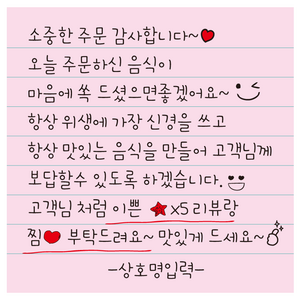 소중한 주문 감사합니다~♥
오늘 주문하신 음식이
마음에 쏙 드셨으면좋겠어요~
항상 위생에 가장 신경을 쓰고
항상 맛있는 음식을 만들어 고객님께
보답할수 있도록 하겠습니다.
고객님 처럼 이쁜 ★x5 리뷰랑
찜♥ 부탁드려요~ 맛있게 드세요~
-상호명입력-